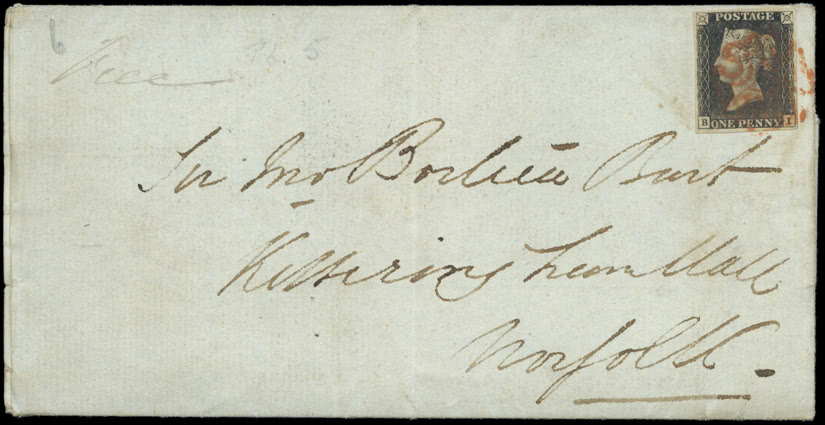 6
Free
Pl 5
POSTAGE
B ONE PENNY I
Sir Jno Boileau Bart
Ketteringham Hall
Norfolk.